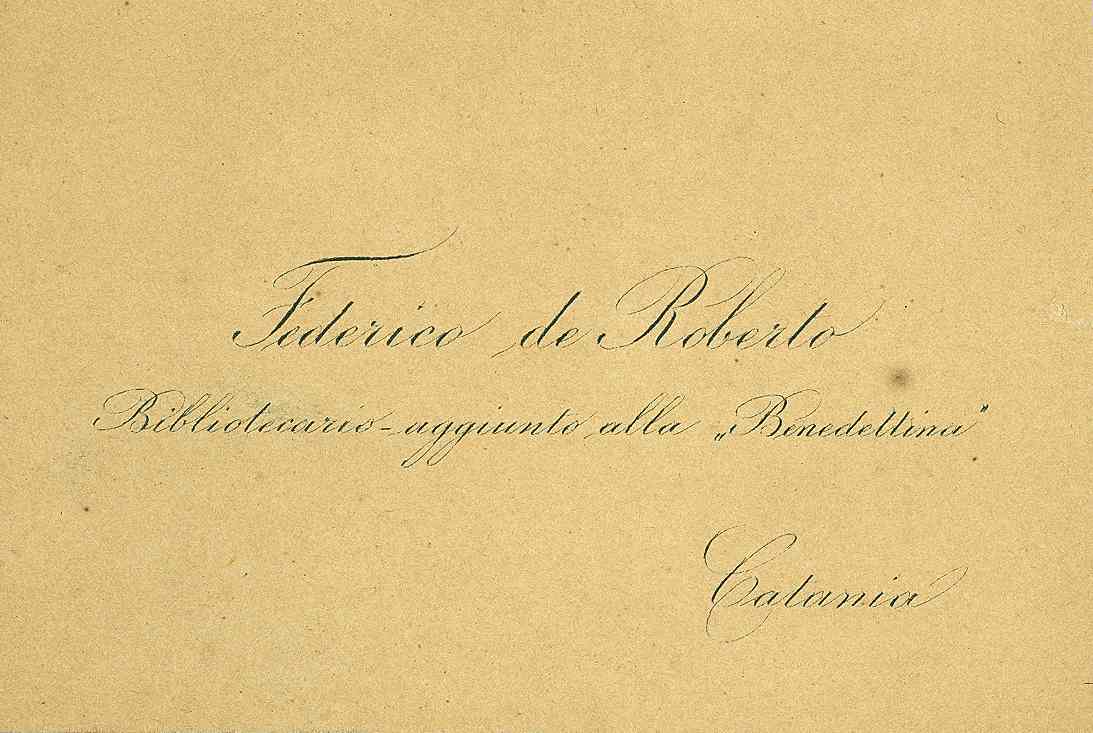 Federico de Roberto
Bibliotecario-aggiunto alla „Benedettina"
Catania